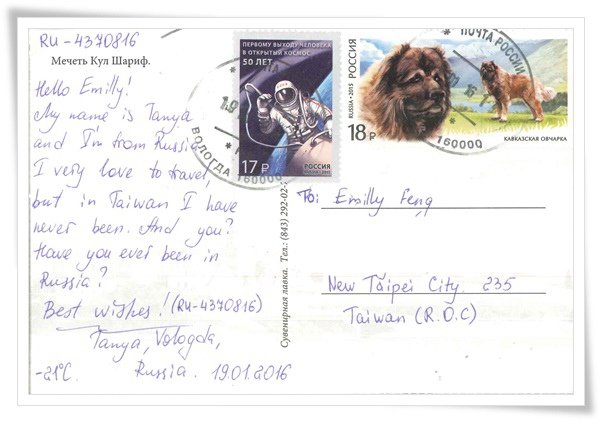 RU-4370816
Мечеть Кул Шариф.
Hello Emilly!
My name is Tanya
and I'm from Russia.
I very love to travel,
but in Taiwan I have
never been. And you?
Have you ever been in
Russia?
Best wishes! (RU-4370816)
Tanya, Vologda,
-21°C. Russia. 19.01.2016
ПЕРВОМУ ВЫХОДУ ЧЕЛОВЕКА
В ОТКРЫТЫЙ КОСМОС
50 ЛЕТ
17 ₽
РОССИЯ
ВОЛОГДА
160000
РОССИЯ
RUSSIA • 2015
18 ₽
КАВКАЗСКАЯ ОВЧАРКА
ПОЧТА РОССИИ
160000
Сувенирная лавка. Тел.: (843) 292-02-
To: Emilly Feng
New Taipei City. 235
Taiwan (R.O.C)